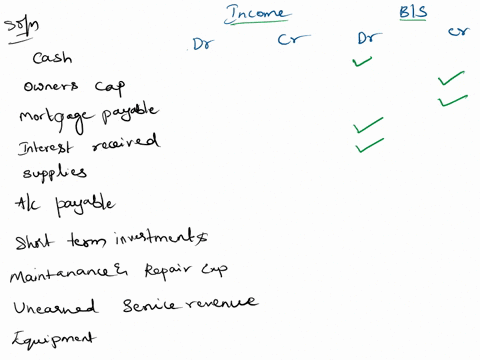 Sol/n
Income B/S
Dr Cr Dr Cr
Cash ✓
Owners cap ✓
Mortgage payable ✓
Interest received ✓
supplies ✓
A/c payable
Short term investments
Maintanance & Repair Exp
Unearned Service revenue
Equipment